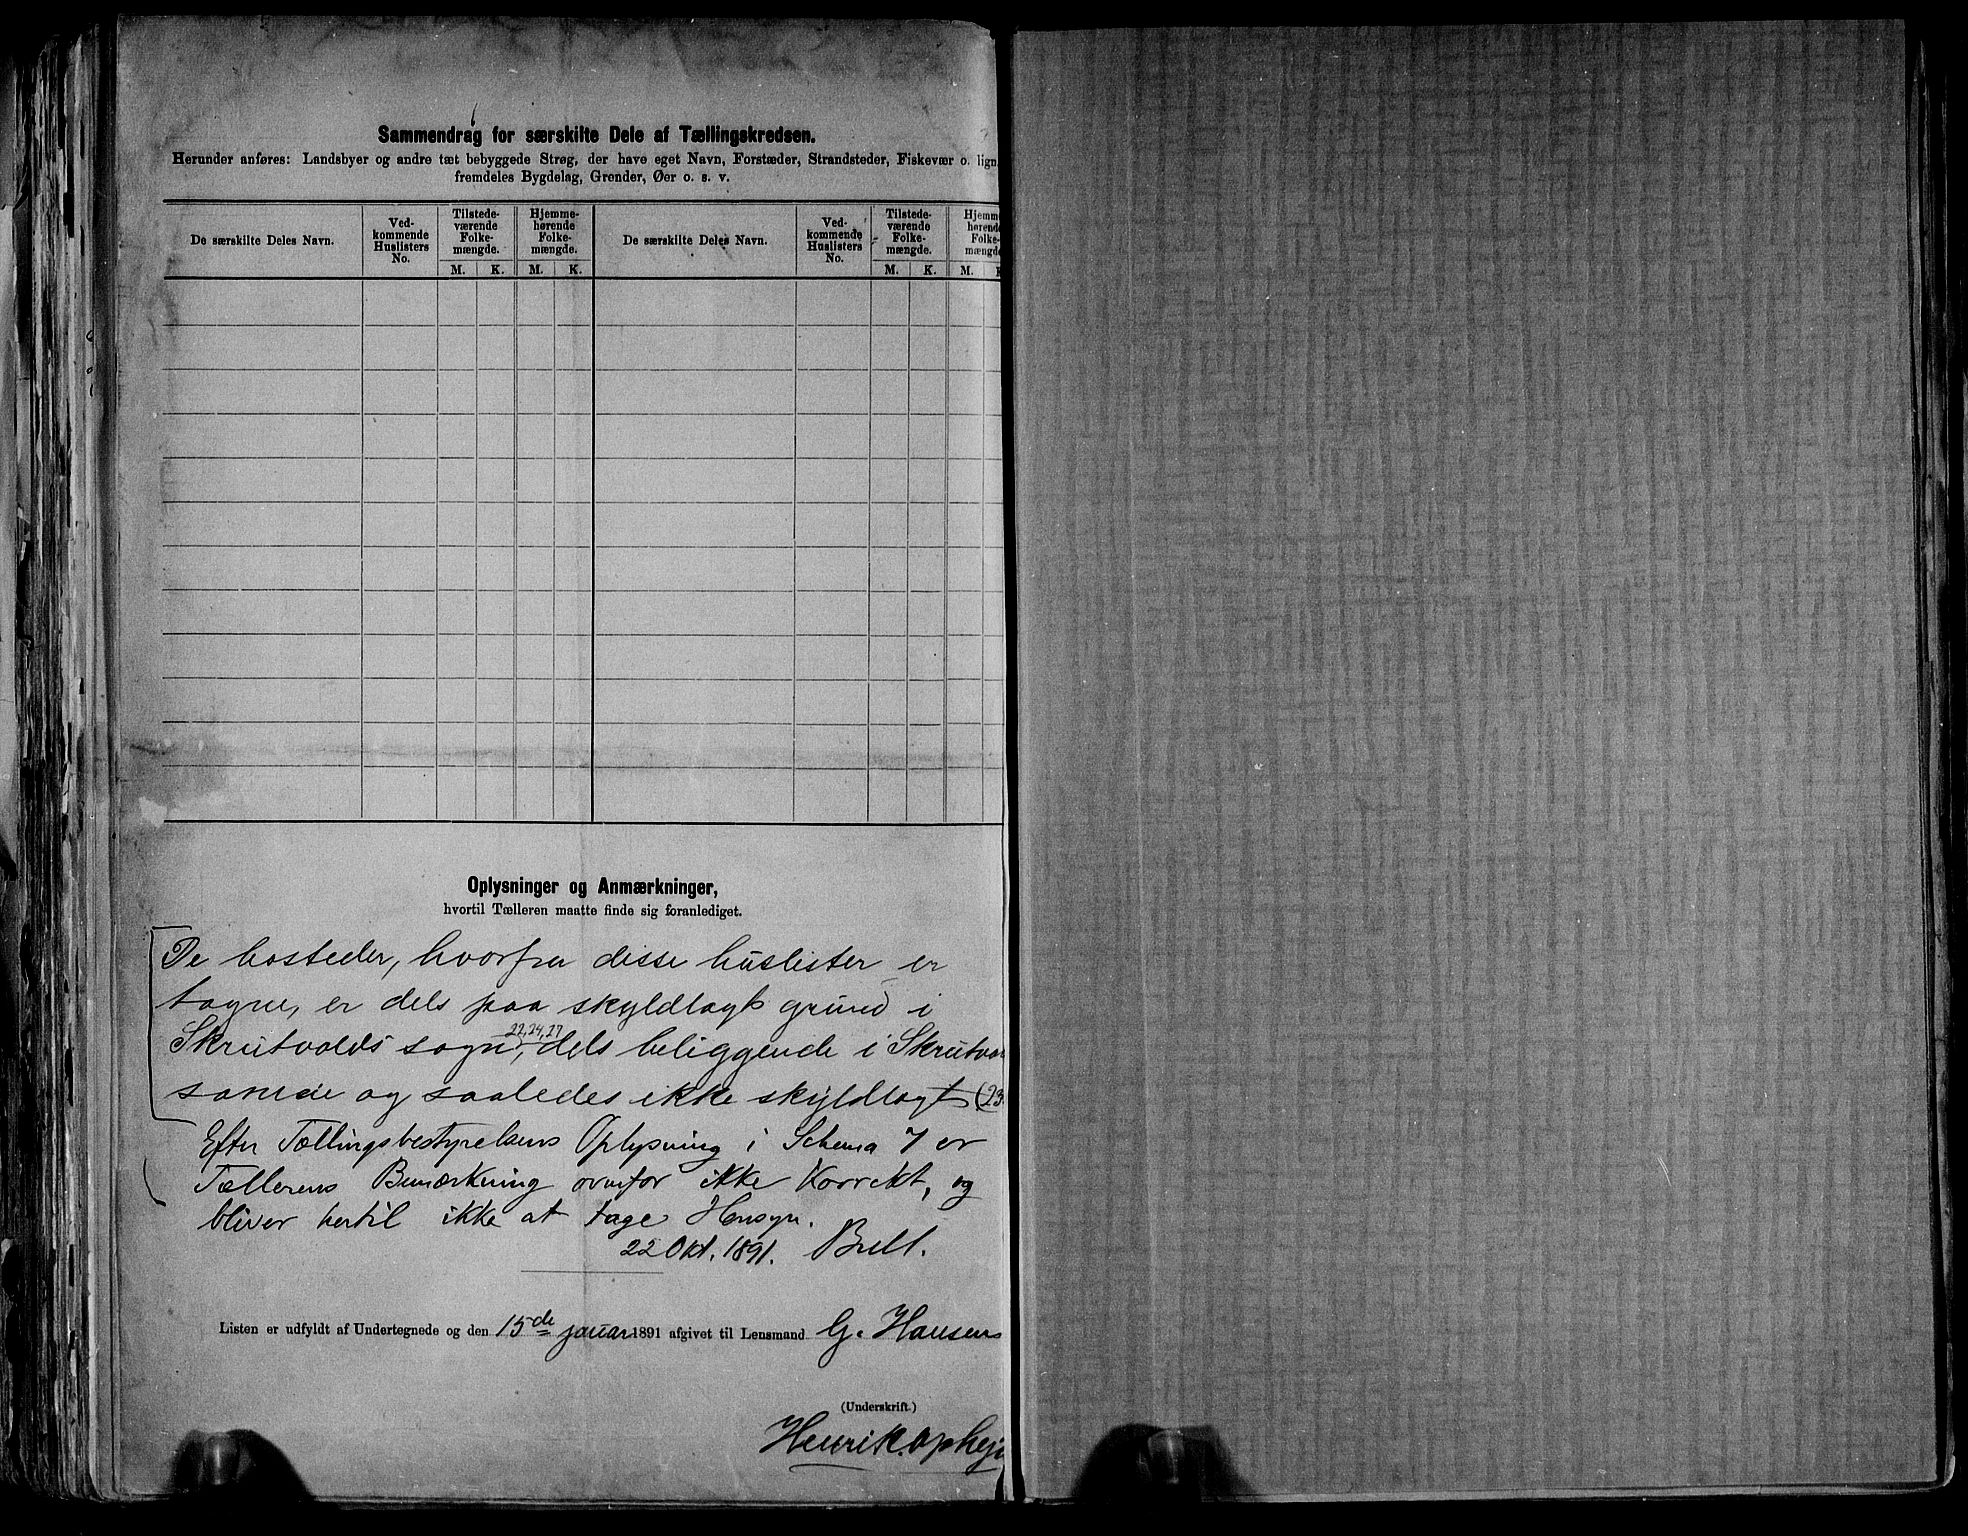 Sammendrag for særskilte Dele af Tællingskredsen.
Herunder anføres: Landsbyer og andre tæt bebyggede Strøg, der have eget Navn, Forstæder, Strandsteder, Fiskevær o. lign.
fremdeles Bygdelag, Grender, Øer o. s. v.
De særskilte Deles Navn.
Ved-
kommende
Huslisters
No.
Tilstede-
værende
Folke-
mængde.
M. K.
Hjemme-
hørende
Folke-
mængde.
M. K.
De særskilte Deles Navn.
Ved-
kommende
Huslisters
No.
Tilstede-
værende
Folke-
mængde.
M. K.
Hjemm
hørend
Folke-
mængd
M. K
Oplysninger og Anmærkninger,
hvortil Tælleren maatte finde sig foranlediget.
De bosteder, hvorfra disse huslister er
tagne, er dels paa skyldlagt grund i
22, 24, 27
Skrutvolds sogn, dels beliggende i Skrutvo
og saaledes ikke skyldlagt (23
Efter Tællingsbestyrelsens Oplysning i Schema 7 er
Tællerens Bemærkning ovenfor ikke Korrekt, og
bliver hertil ikke at tage Hensyn.
22 Okt. 1891.
Listen er udfyldt af Undertegnede og den 15de januar 1891 afgivet til Lensmand G. Hansen
(Underskrift.)
Henrik. Ophej